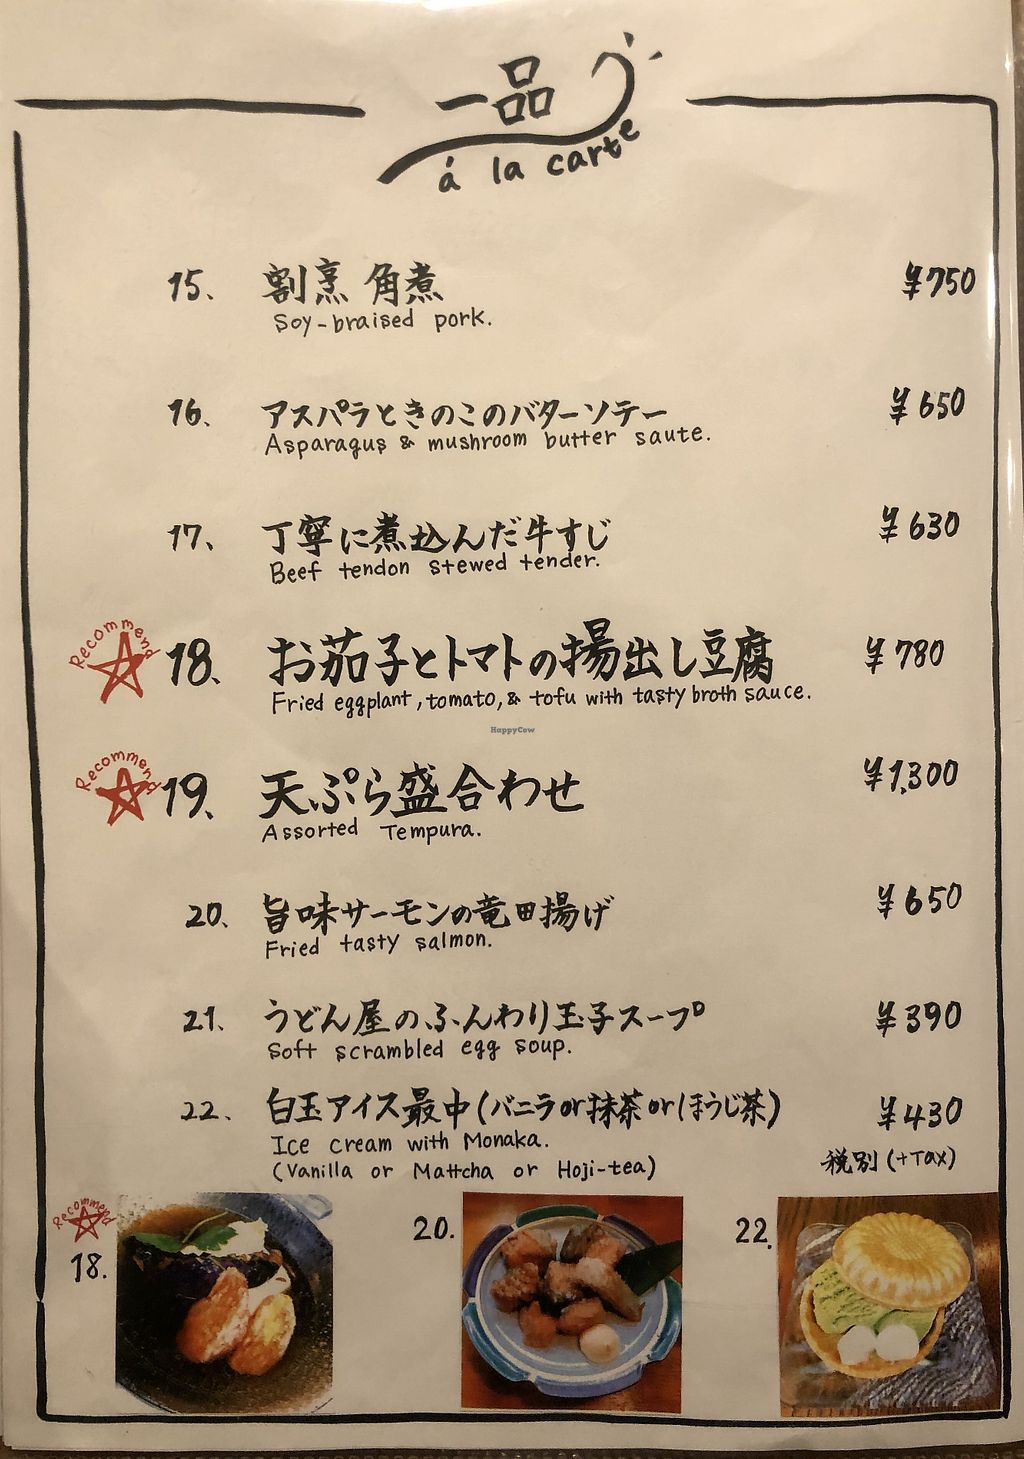 一品
á la carte
15、 割烹 角煮 ¥750
Soy-braised pork.
16、 アスパラときのこのバターソテー ¥650
Asparagus & mushroom butter saute.
17、 丁寧に煮込んだ牛すじ ¥630
Beef tendon stewed tender.
Recommend
18、 お茄子とトマトの揚出し豆腐 ¥780
Fried eggplant, tomato, & tofu with tasty broth sauce.
HappyCow
Recommend
19、 天ぷら盛合わせ ¥1,300
Assorted Tempura.
20、 旨味サーモンの竜田揚げ ¥650
Fried tasty salmon.
21、 うどん屋のふんわり玉子スープ ¥390
Soft scrambled egg soup.
22、 白玉アイス最中(バニラor抹茶orほうじ茶) ¥430
Ice cream with Monaka.
(Vanilla or Mattcha or Hoji-tea) 税別(+Tax)
Recommend
18. 20. 22.